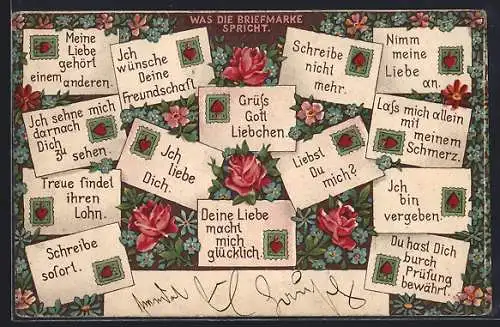 WAS DIE BRIEFMARKE
SPRICHT.
Meine
Liebe
gehört
einem anderen.
Ich
wünsche
Deine
Freundschaft
Schreibe
nicht
mehr.
Nimm
meine
Liebe
an.
Grüſs
Gott
Liebchen.
Ich sehne mich
darnach
Dich
zu sehen.
Ich
liebe
Dich.
Liebst
Du
mich?
Laſs mich allein
mit
meinem
Schmerz.
Treue findet
ihren
Lohn.
Deine Liebe
macht
mich
glücklich.
Ich
bin
vergeben.
Schreibe
sofort.
Du hast Dich
durch
Prüfung
bewährt.